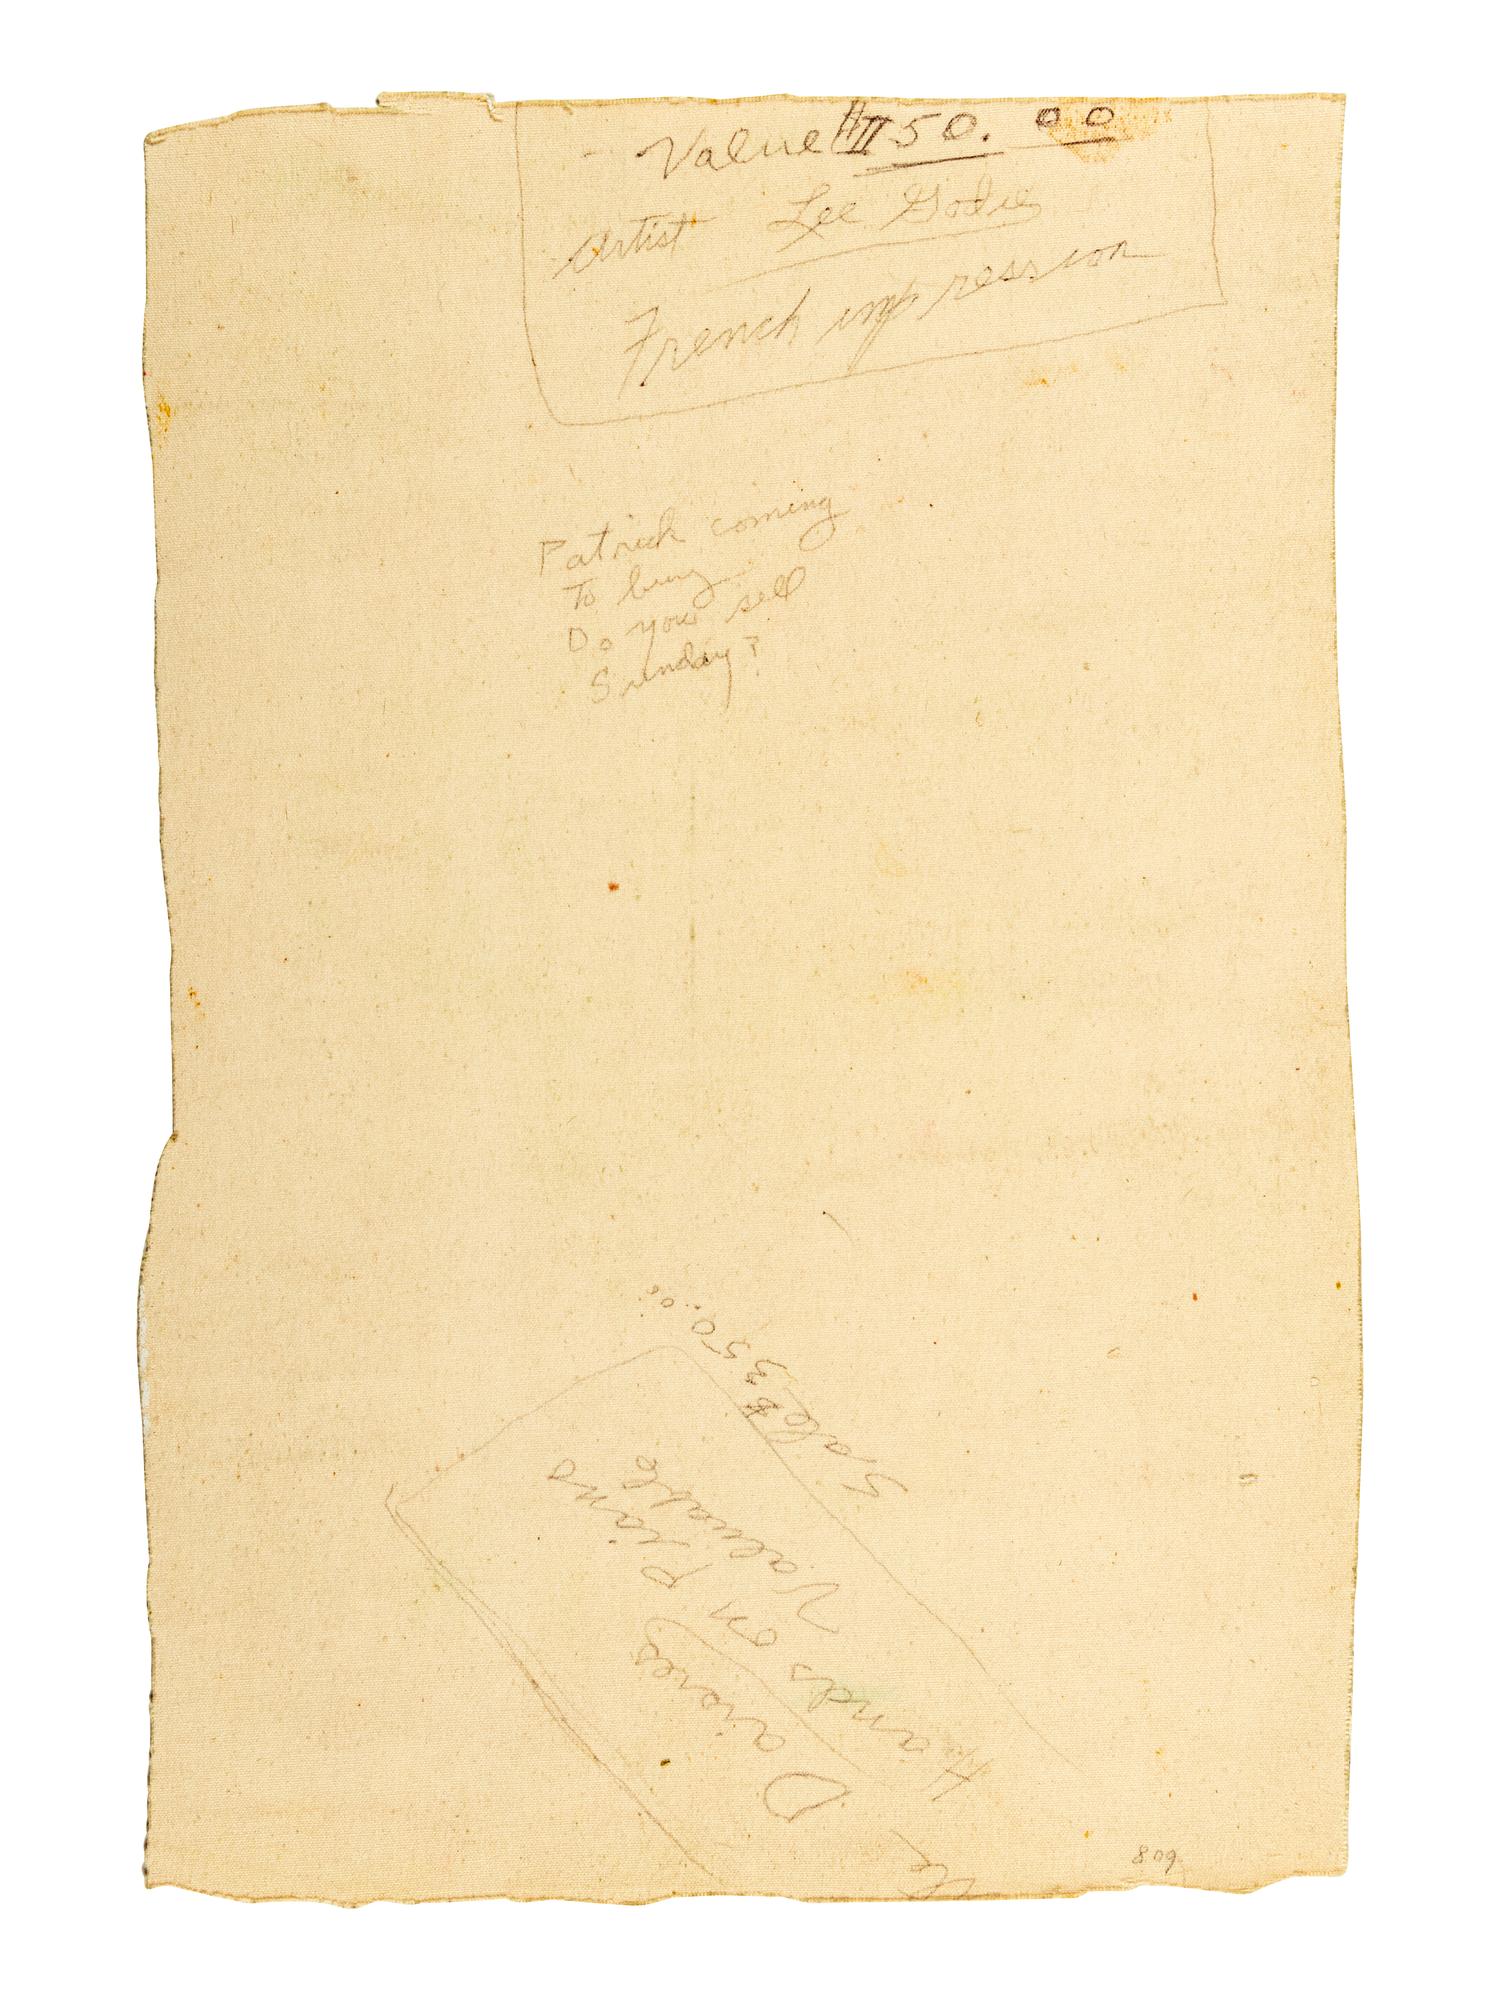 Value 50.00
Artist Lee Godie
French impression
Patrick coming
To buy
Do you sell
Sunday?
Sale $350.00
Hands on Valuable
Piano
809